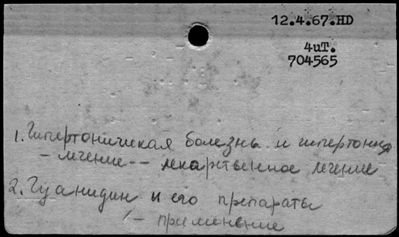 12.4.67.HD
4иТ.
704565
1. Гипертоническая болезнь и гипертония
- лечение -- лекарственное лечение
2. Гуанидин и его препараты
- применение